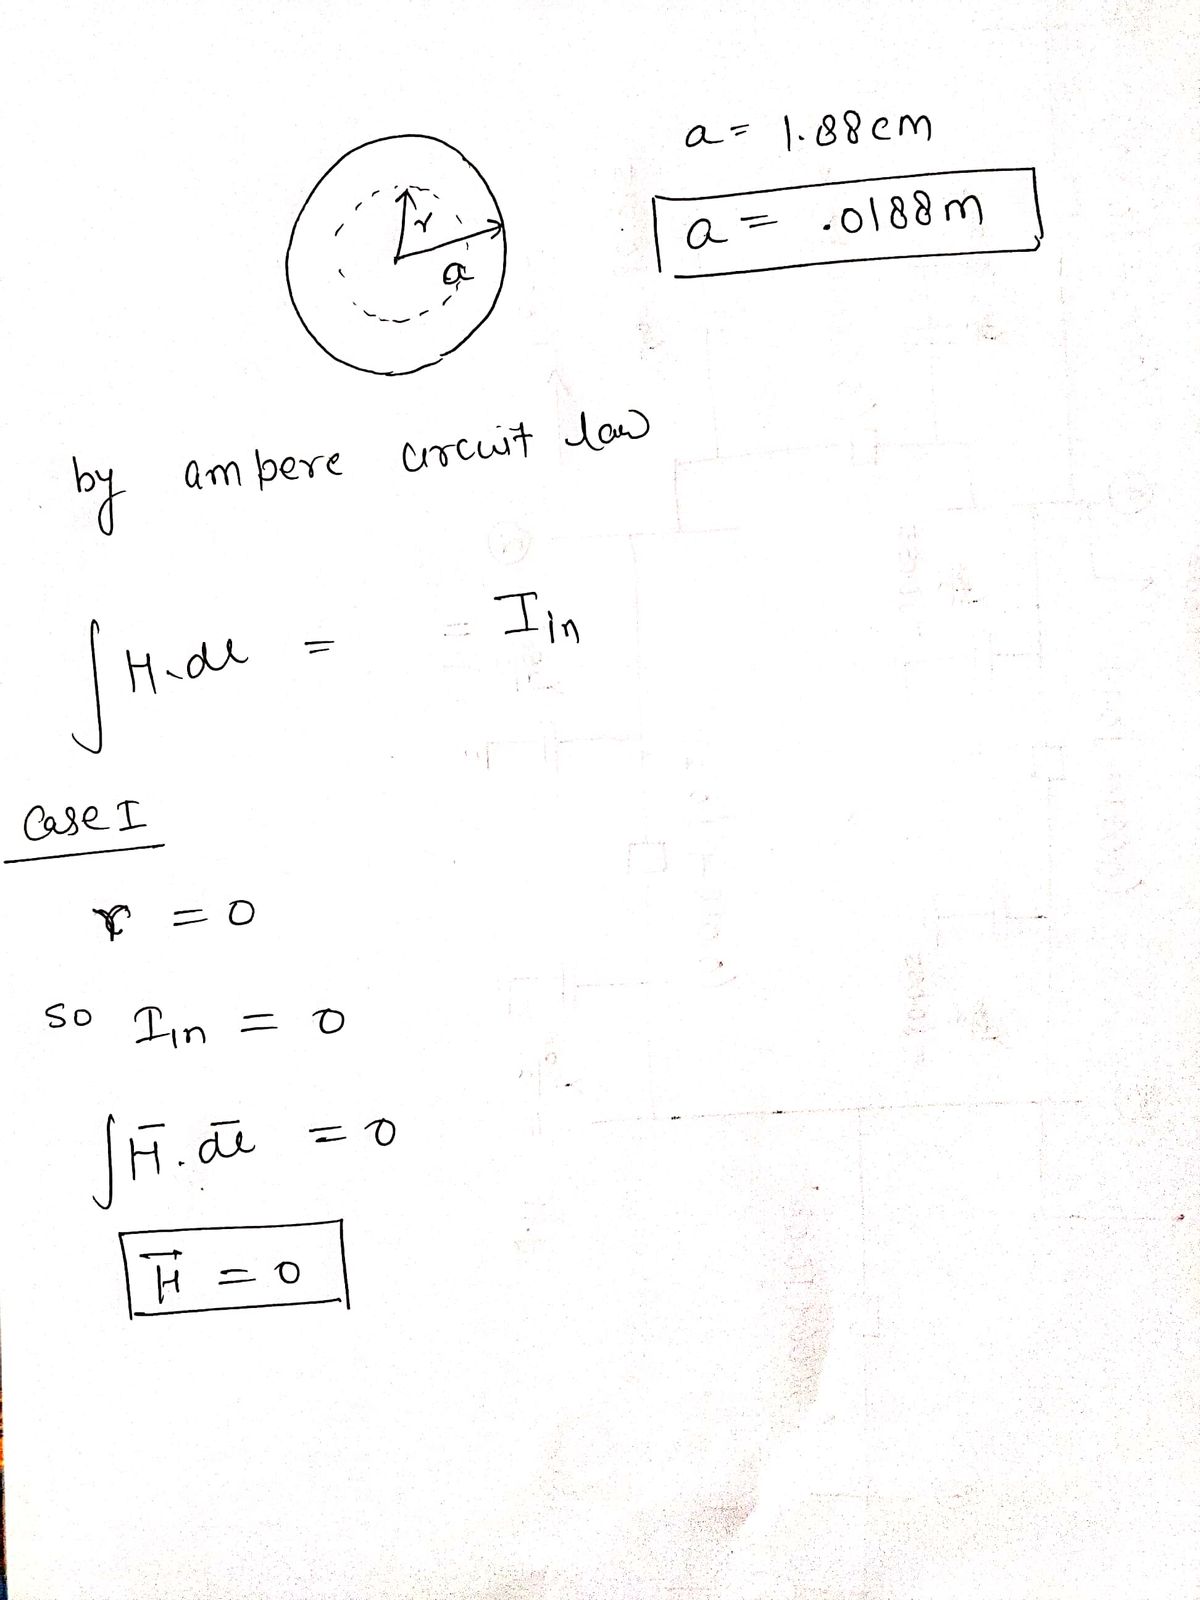 a = 1.88 cm
a = .0188 m
r
a
by ampere circuit law
∫ H.dl = = Iin
Case I
r = 0
so Iin = 0
∫ H̅.d̅l̅ = 0
H⃗ = 0